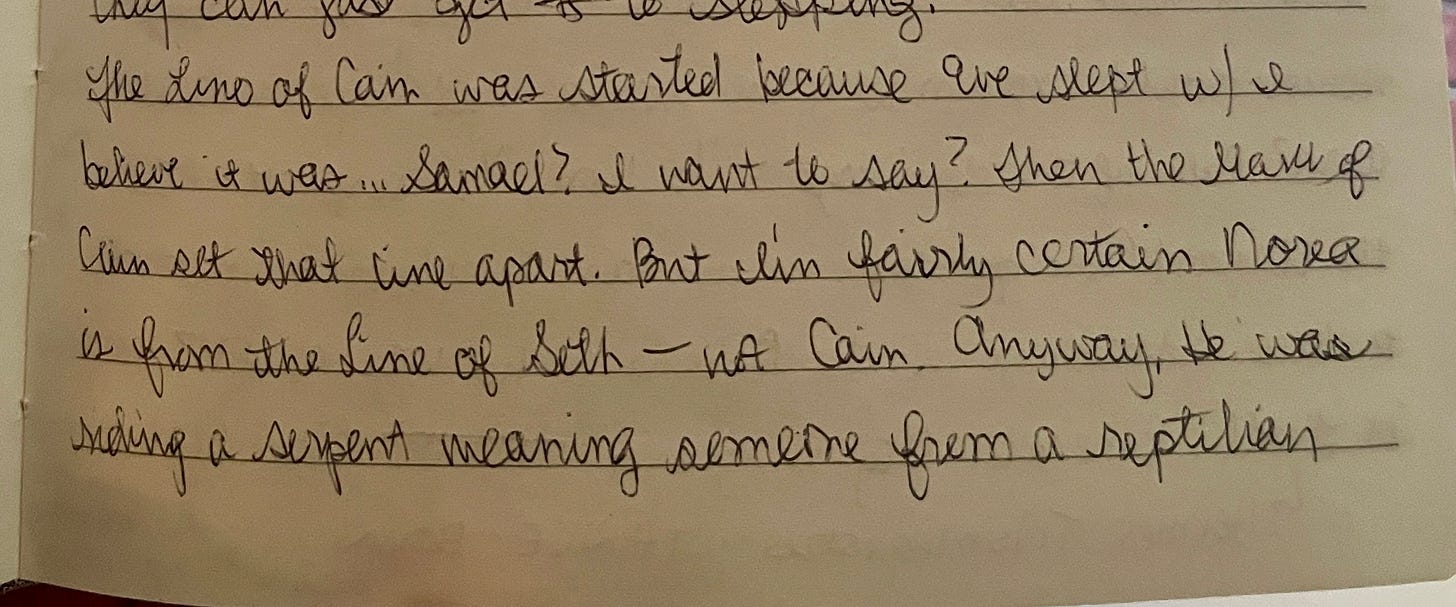 they can just get to stepping.
The Line of Cain was started because Eve slept w/ I
believe it was... Samael? I want to say? Then the Mark of
Cain set that line apart. But I'm fairly certain Norea
is from the line of Seth — not Cain. Anyway, He was
riding a serpent meaning someone from a reptilian